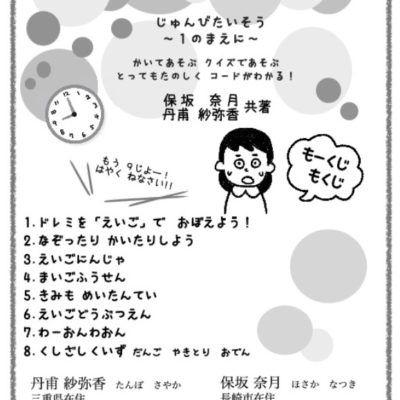 じゅんびたいそう
～1のまえに～
かいてあそぶ クイズであそぶ
とってもたのしく コードがわかる！
保坂 奈月
丹甫 紗弥香 共著
もう 9じよー！
はやく ねなさい!!
もーくじ
もくじ
1.ドレミを「えいご」で おぼえよう！
2.なぞったり かいたりしよう
3.えいごにんじゃ
4.まいごふうせん
5.きみも めいたんてい
6.えいごどうぶつえん
7.わーおんわおん
8.くしざしくいず だんご やきとり おでん
丹甫 紗弥香 たんぽ さやか
三重県在住
保坂 奈月 ほさか なつき
長崎市在住